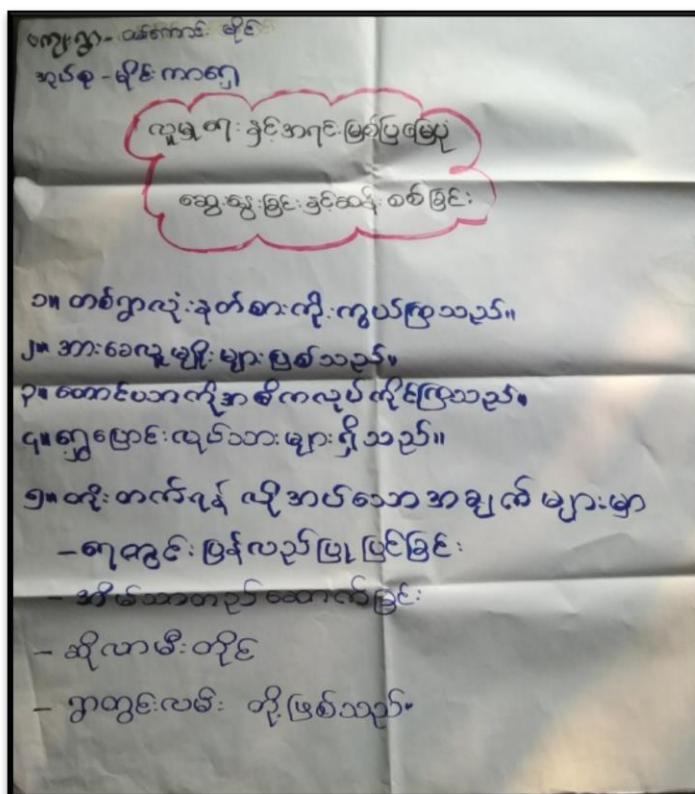 ကျေးရွာ - ပမ်ကောင်း မိုင်
အုပ်စု - မိုင်းကာရှေ
လူမှုရေး နှင့်အရင်းမြစ်ပြမြေပုံ
ဆွေးနွေးခြင်း နှင့်ဆန်းစစ်ခြင်း
၁။ တစ်ရွာလုံးနတ်စားကိုးကွယ်ကြသည်။
၂။ အားခေလူမျိုးများဖြစ်သည်။
၃။ တောင်ယာကိုအဓိကလုပ်ကိုင်ကြသည်။
၄။ ရွှေ့ပြောင်းလုပ်သားများရှိသည်။
၅။ တိုးတက်ရန် လိုအပ်သောအချက်များမှာ
- ရေတွင်းပြန်လည်ပြုပြင်ခြင်း
- အိမ်သာတည်ဆောက်ခြင်း
- ဆိုလာမီးတိုင်
- ရွာတွင်းလမ်း တို့ဖြစ်သည်။